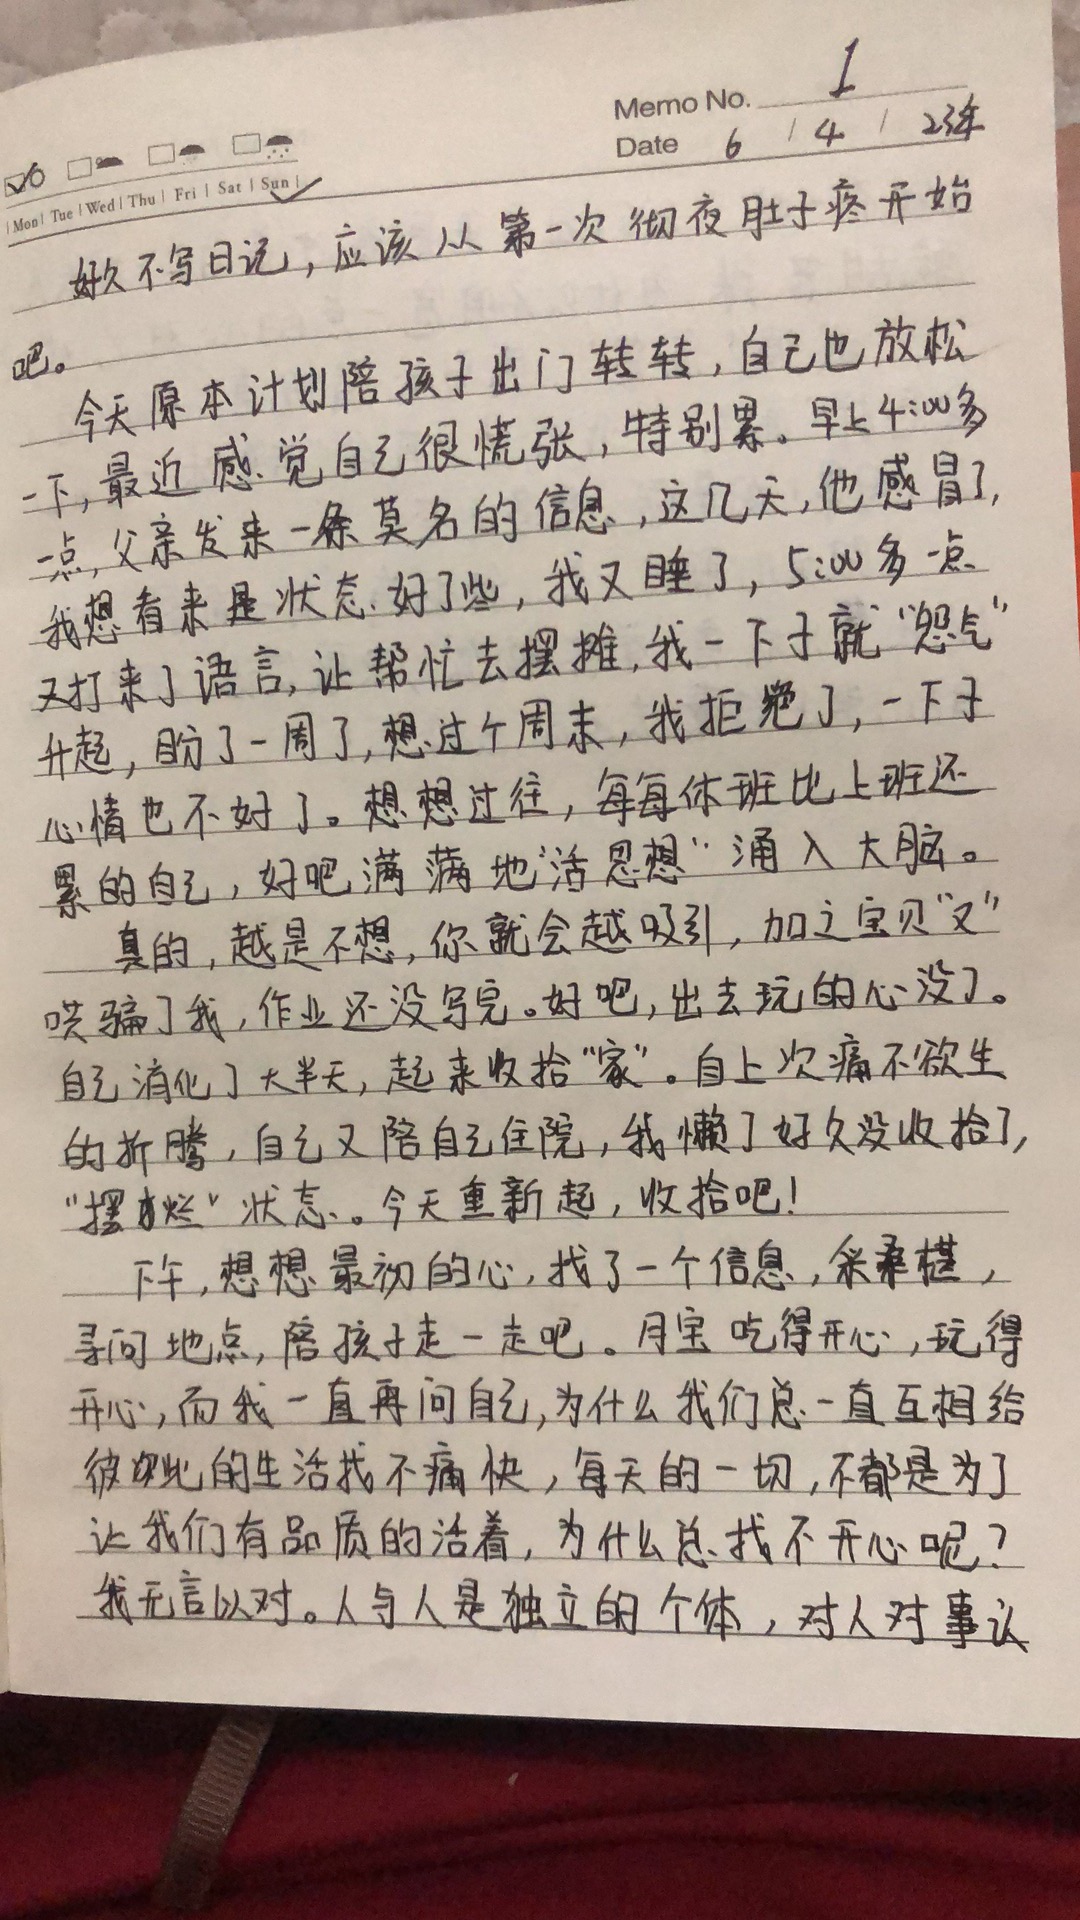 Memo No. 1
Date 6 / 4 / 23年
Mon Tue Wed Thu Fri Sat Sun
好久不写日记，应该从第一次彻夜肚子疼开始
吧。
今天原本计划陪孩子出门转转，自己也放松
一下，最近感觉自己很慌张，特别累。早上4:00多
一点，父亲发来一条莫名的信息，这几天，他感冒了，
我想看来是状态好了些，我又睡了，5:00多一点
又打来了语言，让帮忙去摆摊，我一下子就“怨气”
升起，盼了一周了，想过个周末，我拒绝了，一下子
心情也不好了。想想过往，每每休班比上班还
累的自己，好吧满满地“活思想”涌入大脑。
真的，越是不想，你就会越吸引，加之宝贝“又”
哄骗了我，作业还没写完。好吧，出去玩的心没了。
自己消化了大半天，起来收拾“家”。自上次痛不欲生
的折腾，自己又陪自己住院，我懒了好久没收拾了，
“摆烂”状态。今天重新起，收拾吧！
下午，想想最初的心，找了一个信息，采桑椹，
寻问地点，陪孩子走一走吧。月宝吃得开心，玩得
开心，而我一直再问自己，为什么我们总一直互相给
彼此的生活找不痛快，每天的一切，不都是为了
让我们有品质的活着，为什么总找不开心呢？
我无言以对。人与人是独立的个体，对人对事认